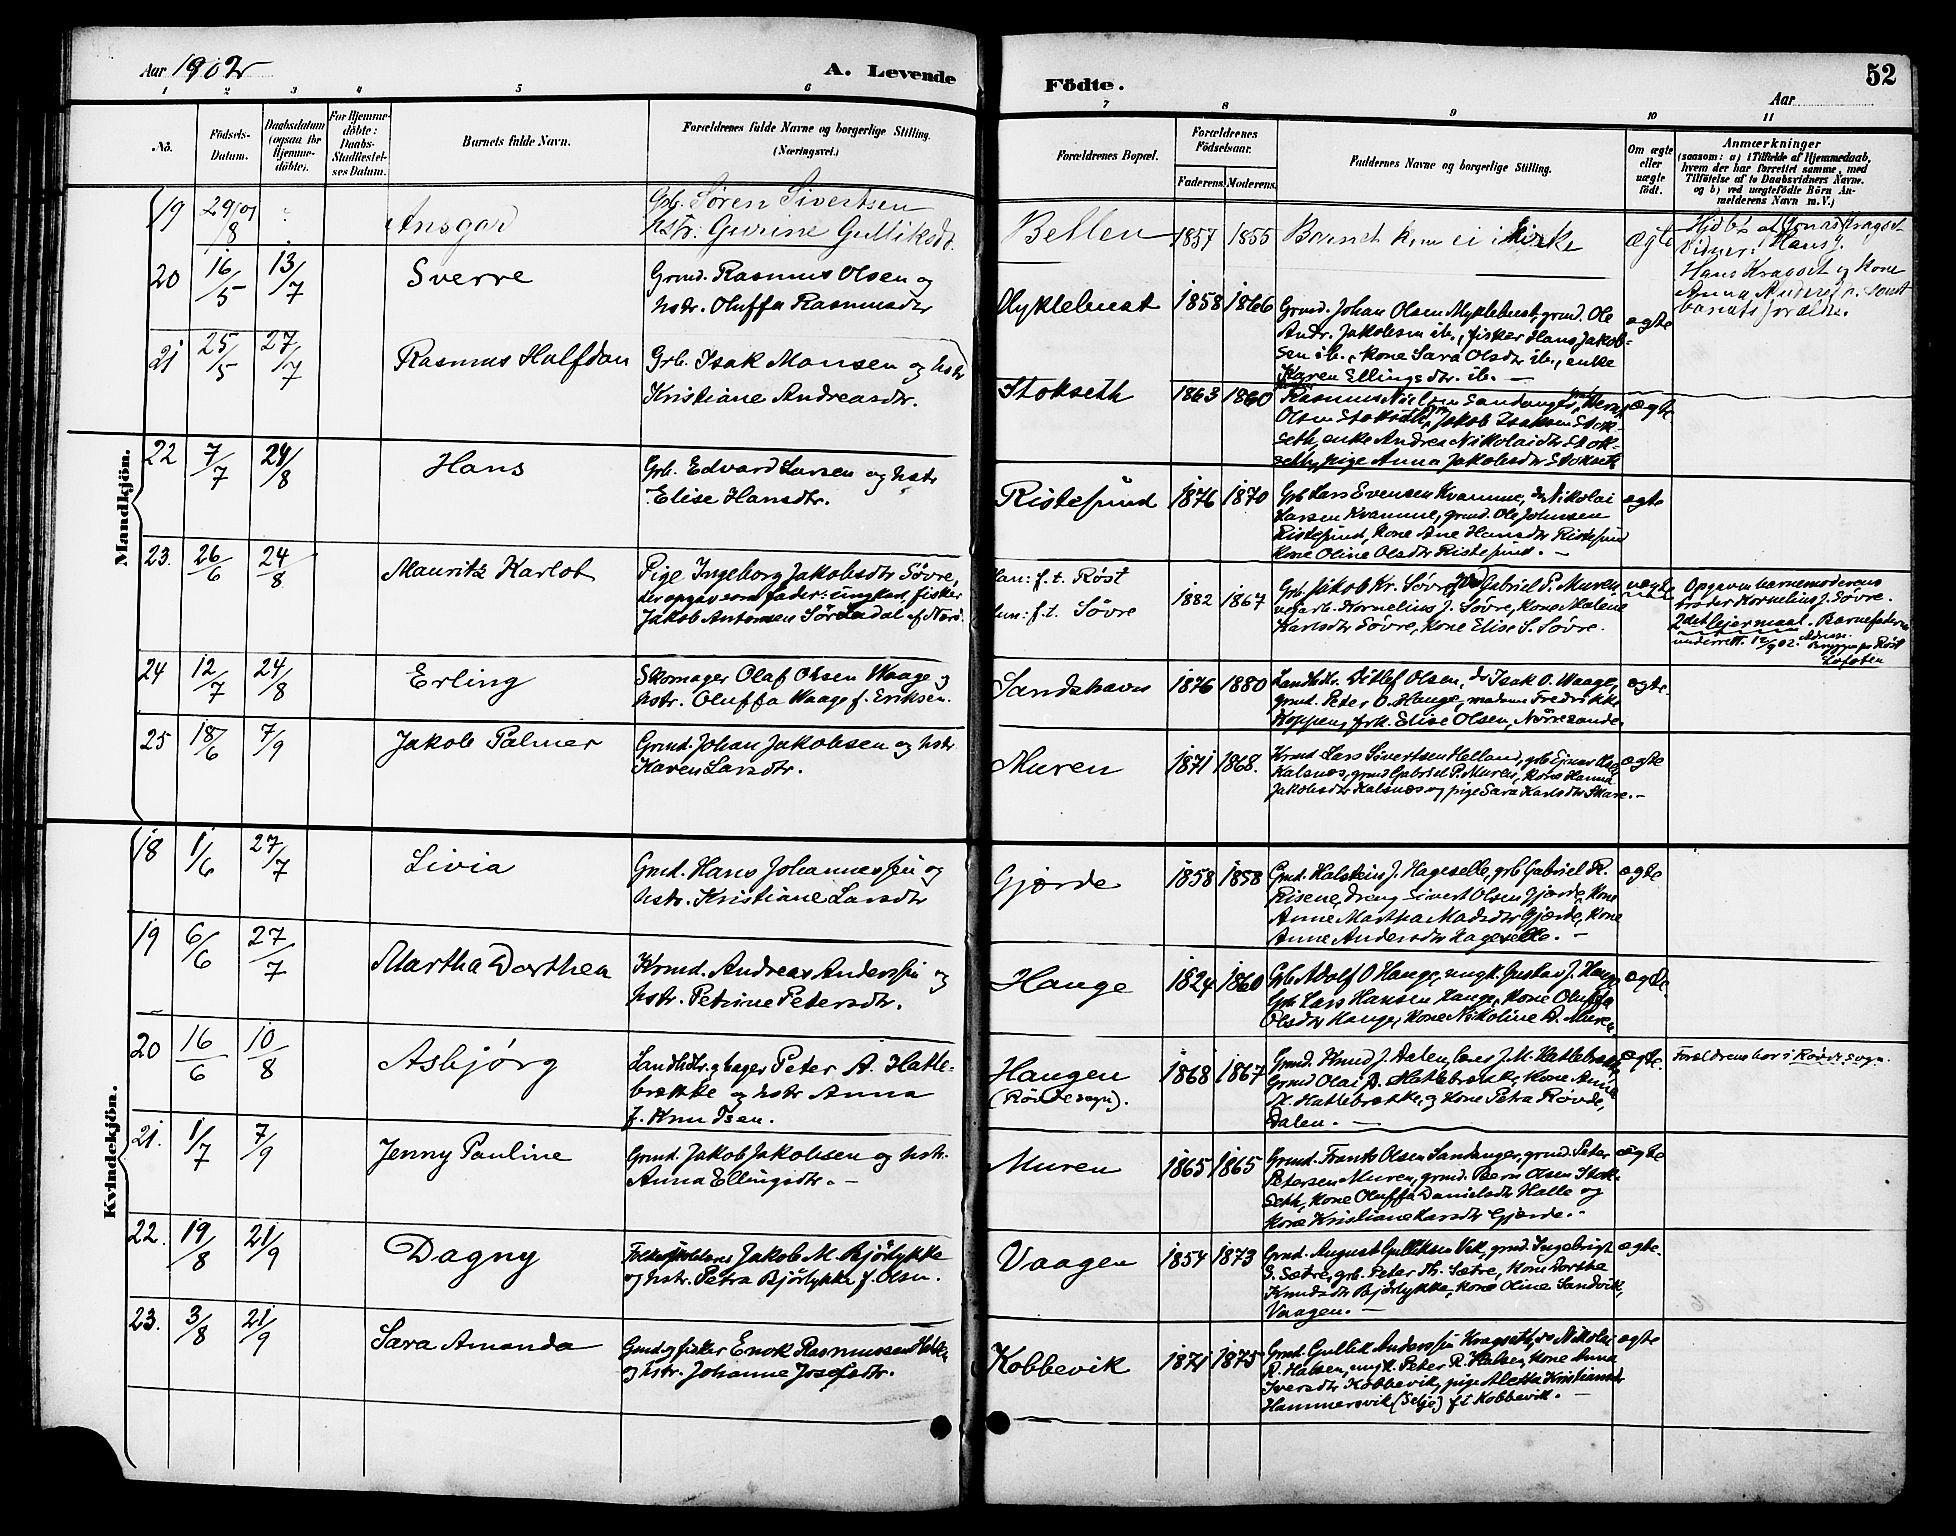 Aar 1902
A. Levende
Födte.
Aar
52
1 2 3 4 5 6 7 8 9 10 11
No.
Födsels-
Datum.
Daabsdatum
(ogsaa for
Hjemme-
döbte).
For Hjemme-
döbte:
Daabs-
Stadfæstel-
ses Datum.
Barnets fulde Navn.
Forældrenes fulde Navne og borgerlige Stilling.
(Næringsvei.)
Forældrenes Bopæl.
Forældrenes
Födselsaar.
Faderens. Moderens.
Faddernes Navne og borgerlige Stilling.
Om ægte
eller
uægte
födt.
Anmærkninger
(saasom: a) i Tilfælde af Hjemmedaab,
hvem der har forrettet samme, med
Tilföielse af to Daabsvidners Navne,
og b) ved uægtefödte Börn An-
melderens Navn m. V.)
Mandkjön.
19 29/8 01
Ansgar
Grb. Sören Sivertsen
hstr. Gurine Gulliksdt.
Betten
1857 1855
Barnet kom ei i kirke
ægte
Hjdbt af Jonas Kragset
Vidner: Hans J.
Hans Kragset og kone
Anna Andersd.
barnets forældre.
20 16/5 13/7
Sverre
Grmd. Rasmus Olsen og
hstr. Oluffa Rasmusdtr
Myklebust
1858 1866
Grmd. Johan Olsen Myklebust, grmd. Ole
Andr. Jakobsen ib., fisker Hans Jakob-
sen ib., kone Sara Olsdtr ib., enke
Karen Ellingsdtr. ib. —
ægte
21 25/5 27/7
Rasmus Halfdan
Grb. Isak Monsen og hstr
Kristiane Andreasdtr.
Stokseth
1863 1860
Rasmus Nielsen Sandanger, Bern
Olsen Stokseth, Jakob Isaksen Stok-
seth, enke Andrea Nikolaidtr Stok-
seth, pige Anna Jakobsdtr Stokseth
ægte
22 7/7 24/8
Hans
Grb. Edvard Larsen og hstr
Elise Hansdtr.
Ristesund
1876 1870
Grb Lars Evensen Kvamme, do Nikolai
Larsen Kvamme, grmd. Ole Johnsen
Ristesund, kone Ane Hansdtr Ristesund
kone Oline Olsdtr Ristesund. —
ægte
23. 26/6 24/8
Mauritz Karlot
Pige Ingeborg Jakobsdtr Søvre,
der opgav som fader: ungkarl, fisker
Jakob Antonsen Sørdal af
Han: f. t. Røst
Hun: f. t. Søvre
1882 1867
Grb. Jakob Kr. Søvre, Gabriel P. Muren,
Kornelius J. Søvre, kone Malene
Karlsdtr Søvre, kone Elise S. Søvre.
uægte
Opgaven barnemoderens
broder Kornelius J. Søvre.
2det leiermaal. Barnefaderen
underrett. 12/9 02. Adresse.
Røst
Lofoten
24 12/7 24/8
Erling
Skomager Olaf Olsen Waage og
hstr. Oluffa Waage f. Eriksen.
Sandshavn
1876 1880
Landhdlr. Ditlef Olsen, do Isak O. Waage,
grmd. Peter O. Hauge, madam Fredrikke
Koppen, frk. Elise Olsen, Nörresande.
ægte.
25 18/6 7/9
Jakob Palmer
Grmd. Johan Jakobsen og hstr
Karen Larsdtr.
Muren
1871 1868.
Krmd Lars Sivertsen Helland, grb Ejnar
Kalsnæs, grmd Gabriel P. Muren, kone Hanna
Jakobsdtr Kalsnæs og pige Sara Karlsdtr Skare. —
ægte
Kvindekjön.
18 1/6 27/7
Livia
Grmd. Hans Johannessen og
hstr. Kristiane Larsdtr
Gjærde
1858 1858
Grmd. Halstein J. Hageselle, grb Gabriel R.
Risene, dreng Sivert Olsen Gjærde, kone
Anne Martha Madsdtr Gjærde, kone
Anne Andersdtr Hageselle. —
ægte
19 6/6 27/7
Martha Dorthea
Krmd. Andreas Anderssen og
hstr. Petrine Petersdtr.
Hauge
1824 1860
Grb Adolf O. Hauge, ungk. Gustav J. Hauge
Grb Lars Hansen Hauge, kone Oluffa
Olsdtr Hauge, kone Nikoline P. Muren
ægte.
20 16/6 10/8
Asbjørg
Landhdlr. og bager Peter A. Hatle-
brække og hstr Anna
f. Knudsen.
Haugen
(Røvdesogn).
1868 1867
Grmd. Knud J. Dalen, lærer J. M. Hatlebrække,
Grmd Olai A. Hatlebrække, kone Anne
M. Hatlebrække, og kone Petra Røvde,
Dalen. —
ægte.
Forældrene bor i Røvdesogn.
21. 1/7 7/9
Jenny Pauline
Grmd. Jakob Jakobsen og hstr.
Anna Ellingsdtr. —
Muren
1865 1865
Grmd. Frants Olsen Sandanger, grmd. Peter
Petersen Muren, grmd. Bern Olsen Stok-
seth, kone Oluffa Danielsdtr Halle og
kone Kristiane Larsdtr Gjærde. -
ægte
22. 19/8 21/9
Dagny
Jakob M. Bjørlykke
og hstr. Petra Bjørlykke f. Olsen.
Vaagen
1854 1873
Grmd. August Gulliksen Vik, grmd. Ingebrigt
S. Sætre, grb. Peter Th. Sætre, kone Dorthe
Knudsdtr Bjørlykke, kone Oline Sandvik,
Vaagen. —
ægte.
23. 3/8 21/9
Sara Amanda
Grmd og fisker Enok Rasmussen
og hstr. Johanne Josefsdtr.
Kobbevik
1871 1875
Grmd. Gullik Anderssen Kragseth, do Nikolai
R. Halsen, ungk. Peter R. Halsen, kone Anna
Iversdtr Kobbevik, pige Aletta Kristiansdtr
Hammersvik (Selje) f. t. Kobbevik. —
ægte